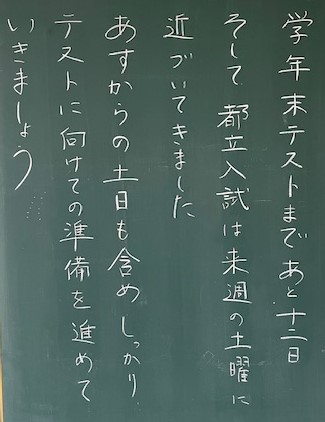 学年末テストまであと十二日
そして都立入試は来週の土曜に
近づいてきました
あすからの土日も含めしっかり
テストに向けての準備を進めて
いきましょう